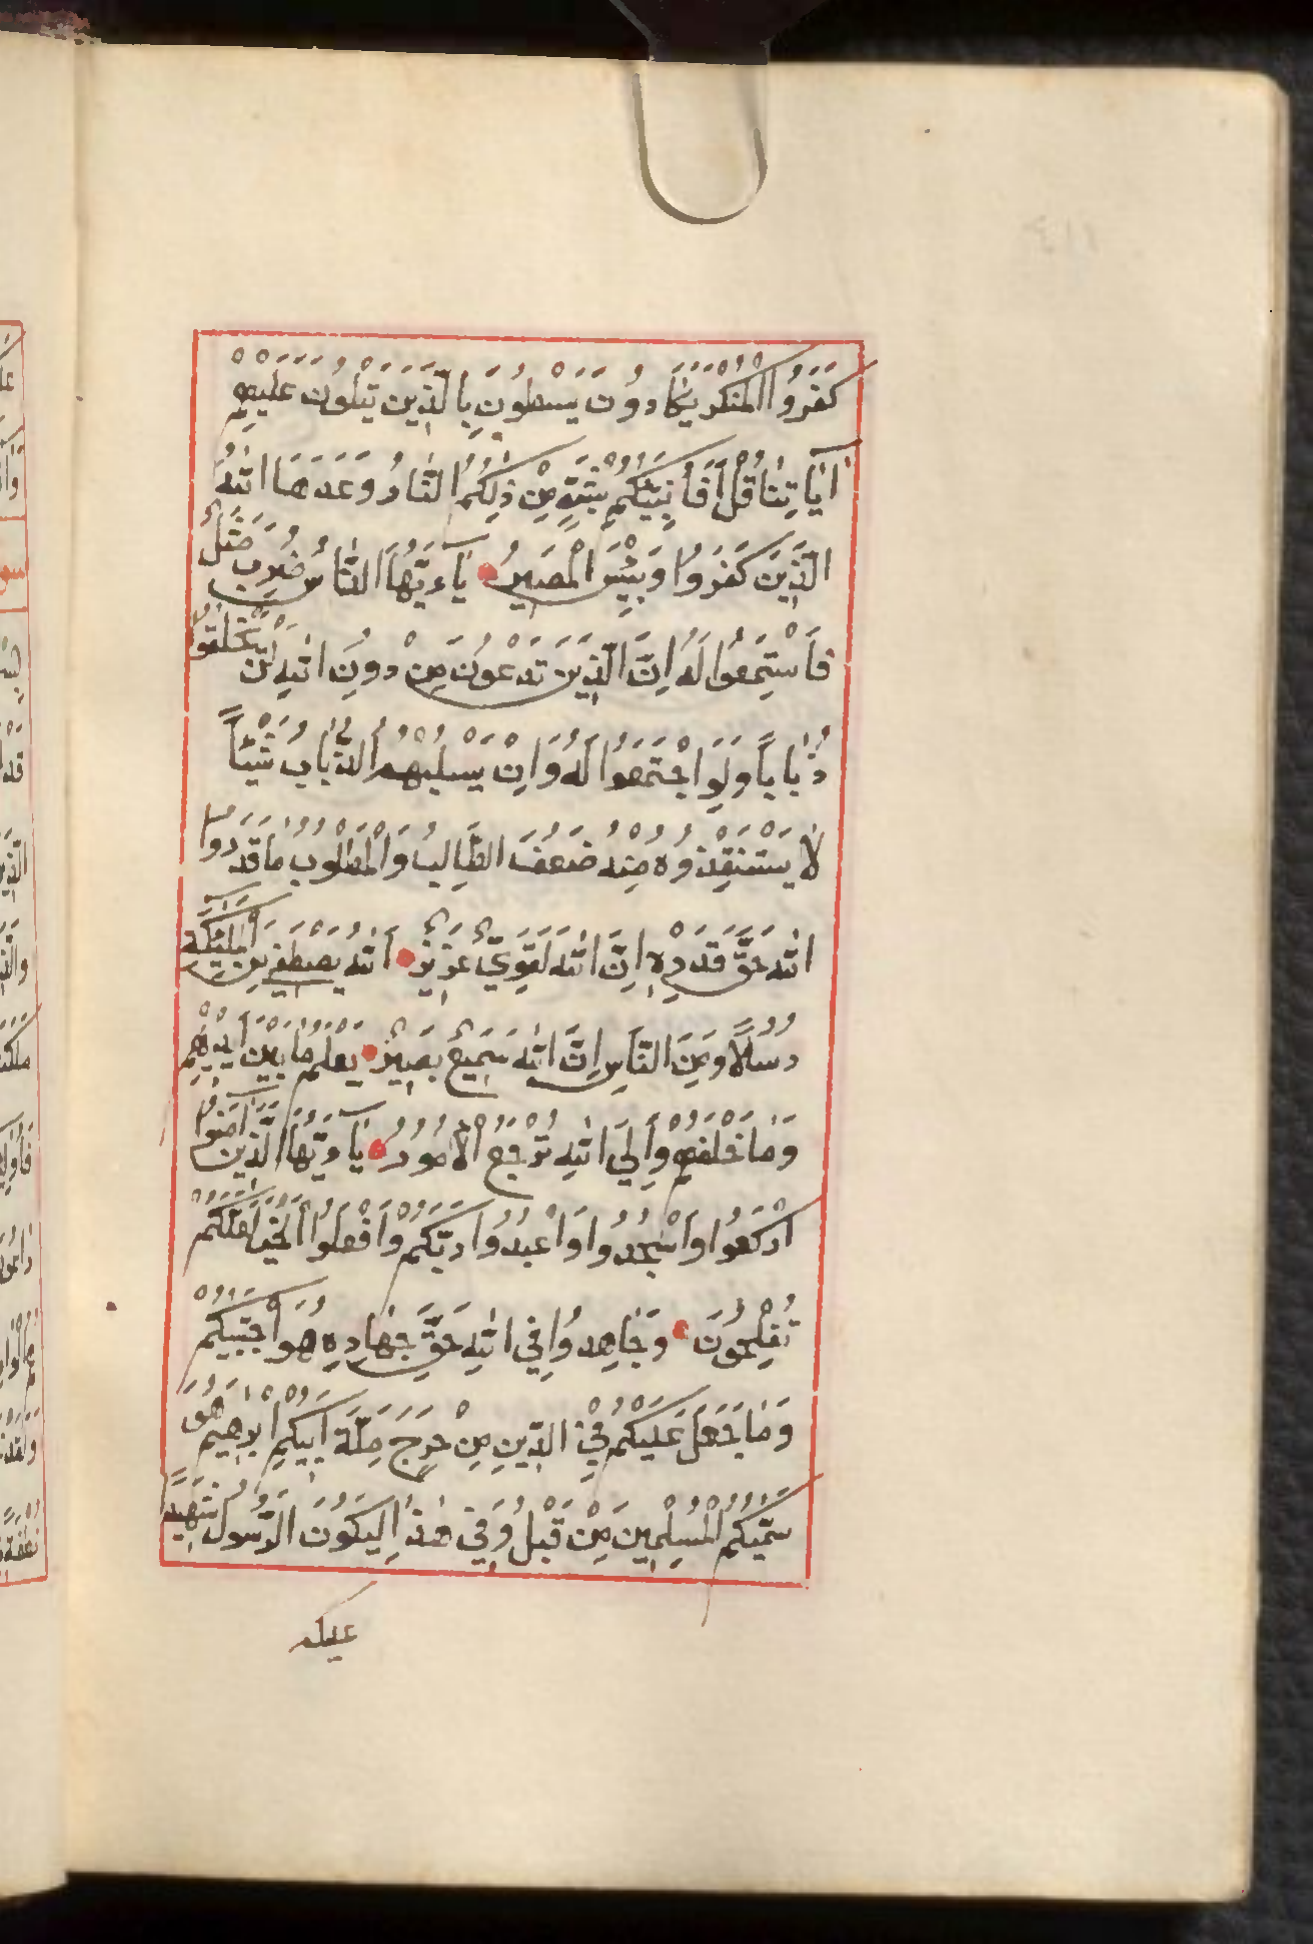 كَفَرُوا الْمُنْكَرَ يَكَادُونَ يَسْطُونَ بِالَّذِينَ يَتْلُونَ عَلَيْهِمْ
آيَاتِنَا قُلْ أَفَأُنَبِّئُكُمْ بِشَرٍّ مِنْ ذَلِكُمُ النَّارُ وَعَدَهَا اللهُ
الَّذِينَ كَفَرُوا وَبِئْسَ الْمَصِيرُ يَاءَيُّهَا النَّاسُ ضُرِبَ مَثَلٌ
فَاسْتَمِعُوا لَهُ اِنَّ الَّذِينَ تَدْعُونَ مِنْ دُونِ اللهِ لَنْ يَخْلُقُوا
ذُبَابًا وَلَوِ اجْتَمَعُوا لَهُ وَاِنْ يَسْلُبْهُمُ الذُّبَابُ شَيْئًا
لَا يَسْتَنْقِذُوهُ مِنْهُ ضَعُفَ الطَّالِبُ وَالْمَطْلُوبُ مَا قَدَرُوا
اللهَ حَقَّ قَدْرِهِ اِنَّ اللهَ لَقَوِيٌّ عَزِيزٌ اَللهُ يَصْطَفِي مِنَ الْمَلٰئِكَةِ
رُسُلًا وَمِنَ النَّاسِ اِنَّ اللهَ سَمِيعٌ بَصِيرٌ يَعْلَمُ مَا بَيْنَ اَيْدِيهِمْ
وَمَا خَلْفَهُمْ وَاِلَى اللهِ تُرْجَعُ الْأُمُورُ يَاءَيُّهَا الَّذِينَ آمَنُوا
ارْكَعُوا وَاسْجُدُوا وَاعْبُدُوا رَبَّكُمْ وَافْعَلُوا الْخَيْرَ لَعَلَّكُمْ
تُفْلِحُونَ وَجَاهِدُوا فِي اللهِ حَقَّ جِهَادِهِ هُوَ اجْتَبٰيكُمْ
وَمَا جَعَلَ عَلَيْكُمْ فِي الدِّينِ مِنْ حَرَجٍ مِلَّةَ اَبِيكُمْ اِبْرٰهِيمَ هُوَ
سَمّٰيكُمُ الْمُسْلِمِينَ مِنْ قَبْلُ وَفِي هٰذَا لِيَكُونَ الرَّسُولُ شَهِيدًا
عليكم